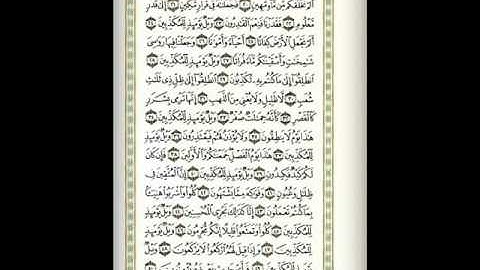 أَلَمْ نَخْلُقكُّم مِّن مَّآءٍ مَّهِينٍ ٢٠ فَجَعَلْنَٰهُ فِى قَرَارٍ مَّكِينٍ ٢١ إِلَىٰ قَدَرٍ
مَّعْلُومٍ ٢٢ فَقَدَرْنَا فَنِعْمَ ٱلْقَٰدِرُونَ ٢٣ وَيْلٌ يَوْمَئِذٍ لِّلْمُكَذِّبِينَ ٢٤
أَلَمْ نَجْعَلِ ٱلْأَرْضَ كِفَاتًا ٢٥ أَحْيَآءً وَأَمْوَٰتًا ٢٦ وَجَعَلْنَا فِيهَا رَوَٰسِىَ
شَٰمِخَٰتٍ وَأَسْقَيْنَٰكُم مَّآءً فُرَاتًا ٢٧ وَيْلٌ يَوْمَئِذٍ لِّلْمُكَذِّبِينَ ٢٨
ٱنطَلِقُوٓا۟ إِلَىٰ مَا كُنتُم بِهِۦ تُكَذِّبُونَ ٢٩ ٱنطَلِقُوٓا۟ إِلَىٰ ظِلٍّ ذِى ثَلَٰثِ
شُعَبٍ ٣٠ لَّا ظَلِيلٍ وَلَا يُغْنِى مِنَ ٱللَّهَبِ ٣١ إِنَّهَا تَرْمِى بِشَرَرٍ
كَٱلْقَصْرِ ٣٢ كَأَنَّهُۥ جِمَٰلَتٌ صُفْرٌ ٣٣ وَيْلٌ يَوْمَئِذٍ لِّلْمُكَذِّبِينَ ٣٤
هَٰذَا يَوْمُ لَا يَنطِقُونَ ٣٥ وَلَا يُؤْذَنُ لَهُمْ فَيَعْتَذِرُونَ ٣٦ وَيْلٌ يَوْمَئِذٍ
لِّلْمُكَذِّبِينَ ٣٧ هَٰذَا يَوْمُ ٱلْفَصْلِ جَمَعْنَٰكُمْ وَٱلْأَوَّلِينَ ٣٨ فَإِن كَانَ
لَكُمْ كَيْدٌ فَكِيدُونِ ٣٩ وَيْلٌ يَوْمَئِذٍ لِّلْمُكَذِّبِينَ ٤٠ إِنَّ ٱلْمُتَّقِينَ فِى
ظِلَٰلٍ وَعُيُونٍ ٤١ وَفَوَٰكِهَ مِمَّا يَشْتَهُونَ ٤٢ كُلُوا۟ وَٱشْرَبُوا۟ هَنِيٓـًٔۢا
بِمَا كُنتُمْ تَعْمَلُونَ ٤٣ إِنَّا كَذَٰلِكَ نَجْزِى ٱلْمُحْسِنِينَ ٤٤ وَيْلٌ يَوْمَئِذٍ
لِّلْمُكَذِّبِينَ ٤٥ كُلُوا۟ وَتَمَتَّعُوا۟ قَلِيلًا إِنَّكُم مُّجْرِمُونَ ٤٦ وَيْلٌ يَوْمَئِذٍ
لِّلْمُكَذِّبِينَ ٤٧ وَإِذَا قِيلَ لَهُمُ ٱرْكَعُوا۟ لَا يَرْكَعُونَ ٤٨ وَيْلٌ